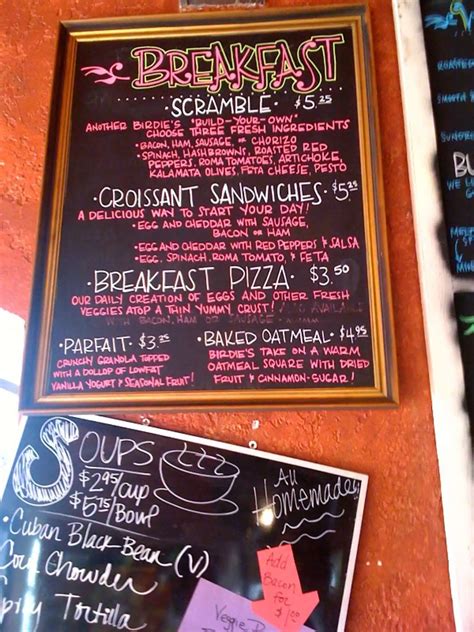 BREAKFAST
SCRAMBLE - $5.25
ANOTHER BIRDIE'S "BUILD-YOUR-OWN"
CHOOSE THREE FRESH INGREDIENTS
• BACON, HAM, SAUSAGE, OR CHORIZO
• SPINACH, HASHBROWNS, ROASTED RED
PEPPERS, ROMA TOMATOES, ARTICHOKE,
KALAMATA OLIVES, FETA CHEESE, PESTO
• CROISSANT SANDWICHES - $5.25
A DELICIOUS WAY TO START YOUR DAY!
• EGG AND CHEDDAR WITH SAUSAGE,
BACON OR HAM
• EGG AND CHEDDAR WITH RED PEPPERS & SALSA
• EGG, SPINACH, ROMA TOMATO, & FETA
• BREAKFAST PIZZA - $3.50
OUR DAILY CREATION OF EGGS AND OTHER FRESH
VEGGIES ATOP A THIN YUMMY CRUST! ALSO AVAILABLE
WITH BACON, HAM OR SAUSAGE
• PARFAIT - $3.25
CRUNCHY GRANOLA TOPPED
WITH A DOLLOP OF LOWFAT
VANILLA YOGURT & SEASONAL FRUIT!
• BAKED OATMEAL - $4.95
BIRDIE'S TAKE ON A WARM
OATMEAL SQUARE WITH DRIED
FRUIT & CINNAMON-SUGAR!
SOUPS
$2.95/CUP
$5.75/BOWL
All Homemade!
• Cuban Black Bean (V)
Corn Chowder
Spicy Tortilla
Add
Bacon
for
$1.00
Veggie